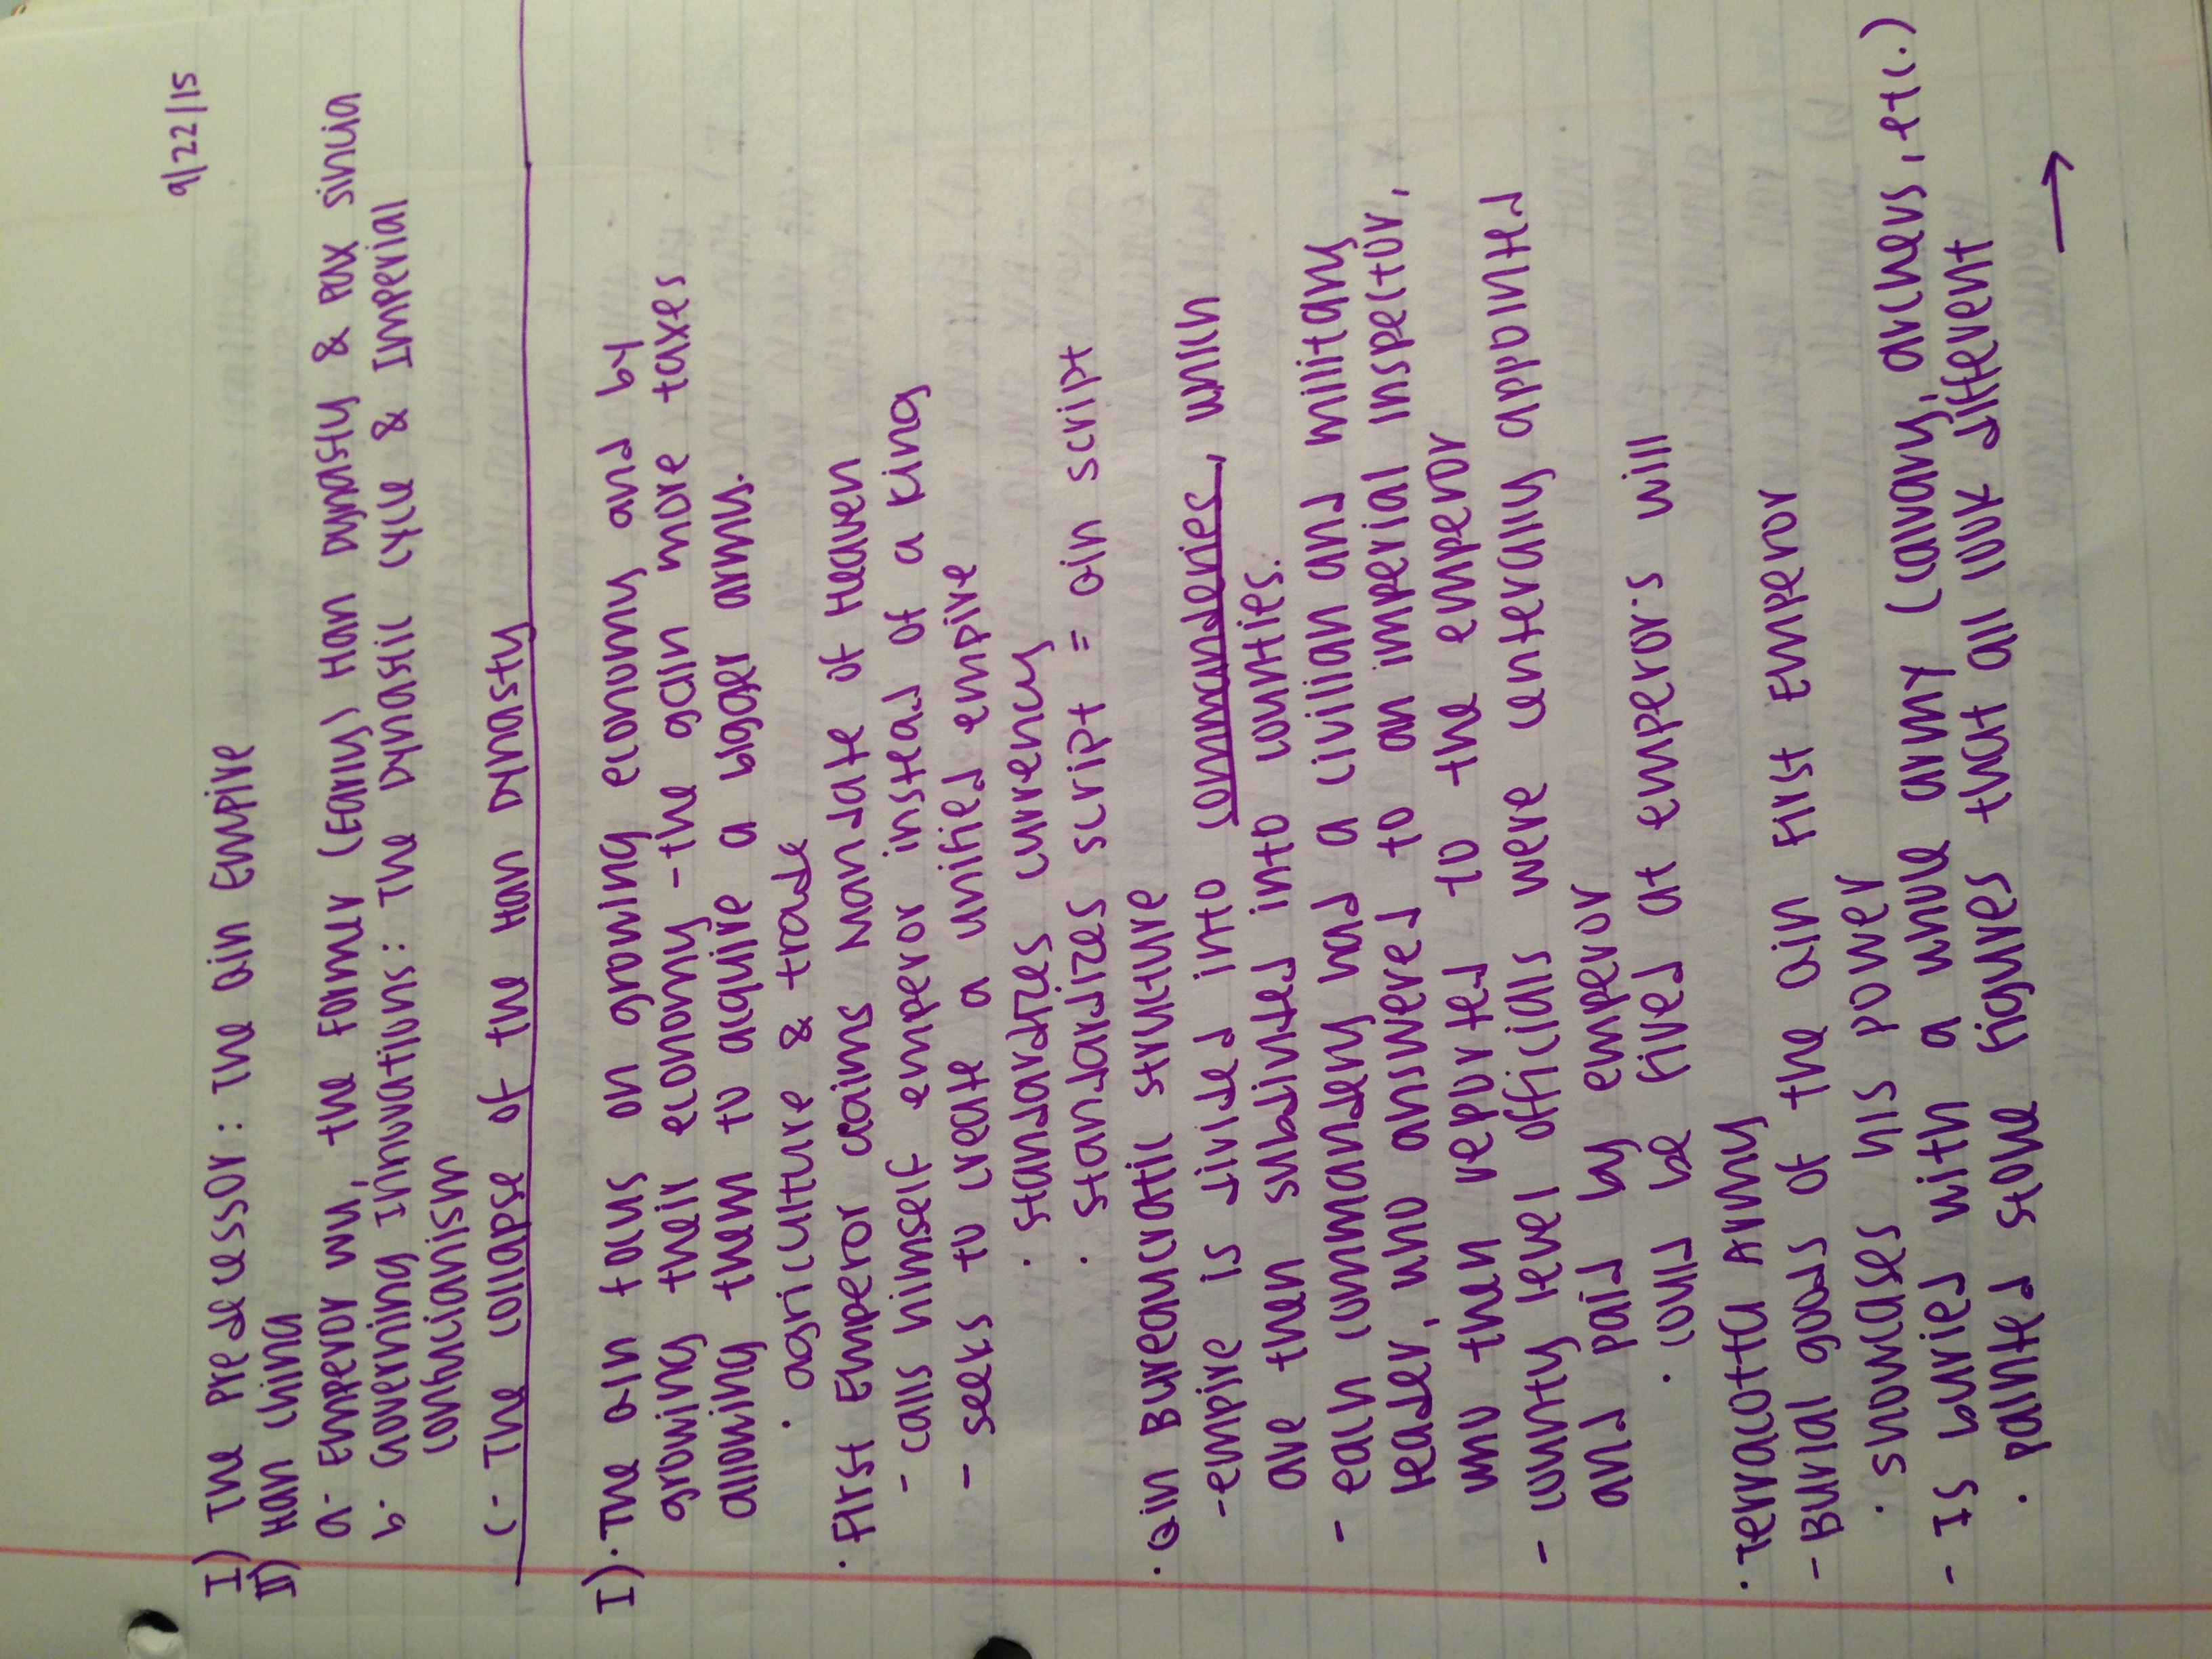 9/22/15
I) The Predecessor: The Qin Empire
II) Han China
a- Emperor Wu, the Former (Early) Han Dynasty & Pax Sinica
b- Governing Innovations: The Dynastic Cycle & Imperial
Confucianism
c- The Collapse of the Han Dynasty
I) · The Qin focus on growing economy and by
growing their economy - the gain more taxes
allowing them to acquire a bigger army.
· agriculture & trade
· First Emperor claims Mandate of Heaven
- calls himself emperor instead of a king
- seeks to create a unified empire
· standardizes currency
· standardizes script = Qin script
· Qin Bureaucratic structure
- empire is divided into commanderies, which
are then subdivided into counties.
- each commandery had a civilian and military
leader, who answered to an imperial inspector,
who then reported to the emperor
- county level officials were centerally appointed
and paid by emperor
· could be fired at emperor's will
· Terracotta Army
- Burial goods of the Qin First Emperor
· showcases his power
- Is buried with a whole army (calvary, archers, etc.)
· painted stone figures that all look different
→